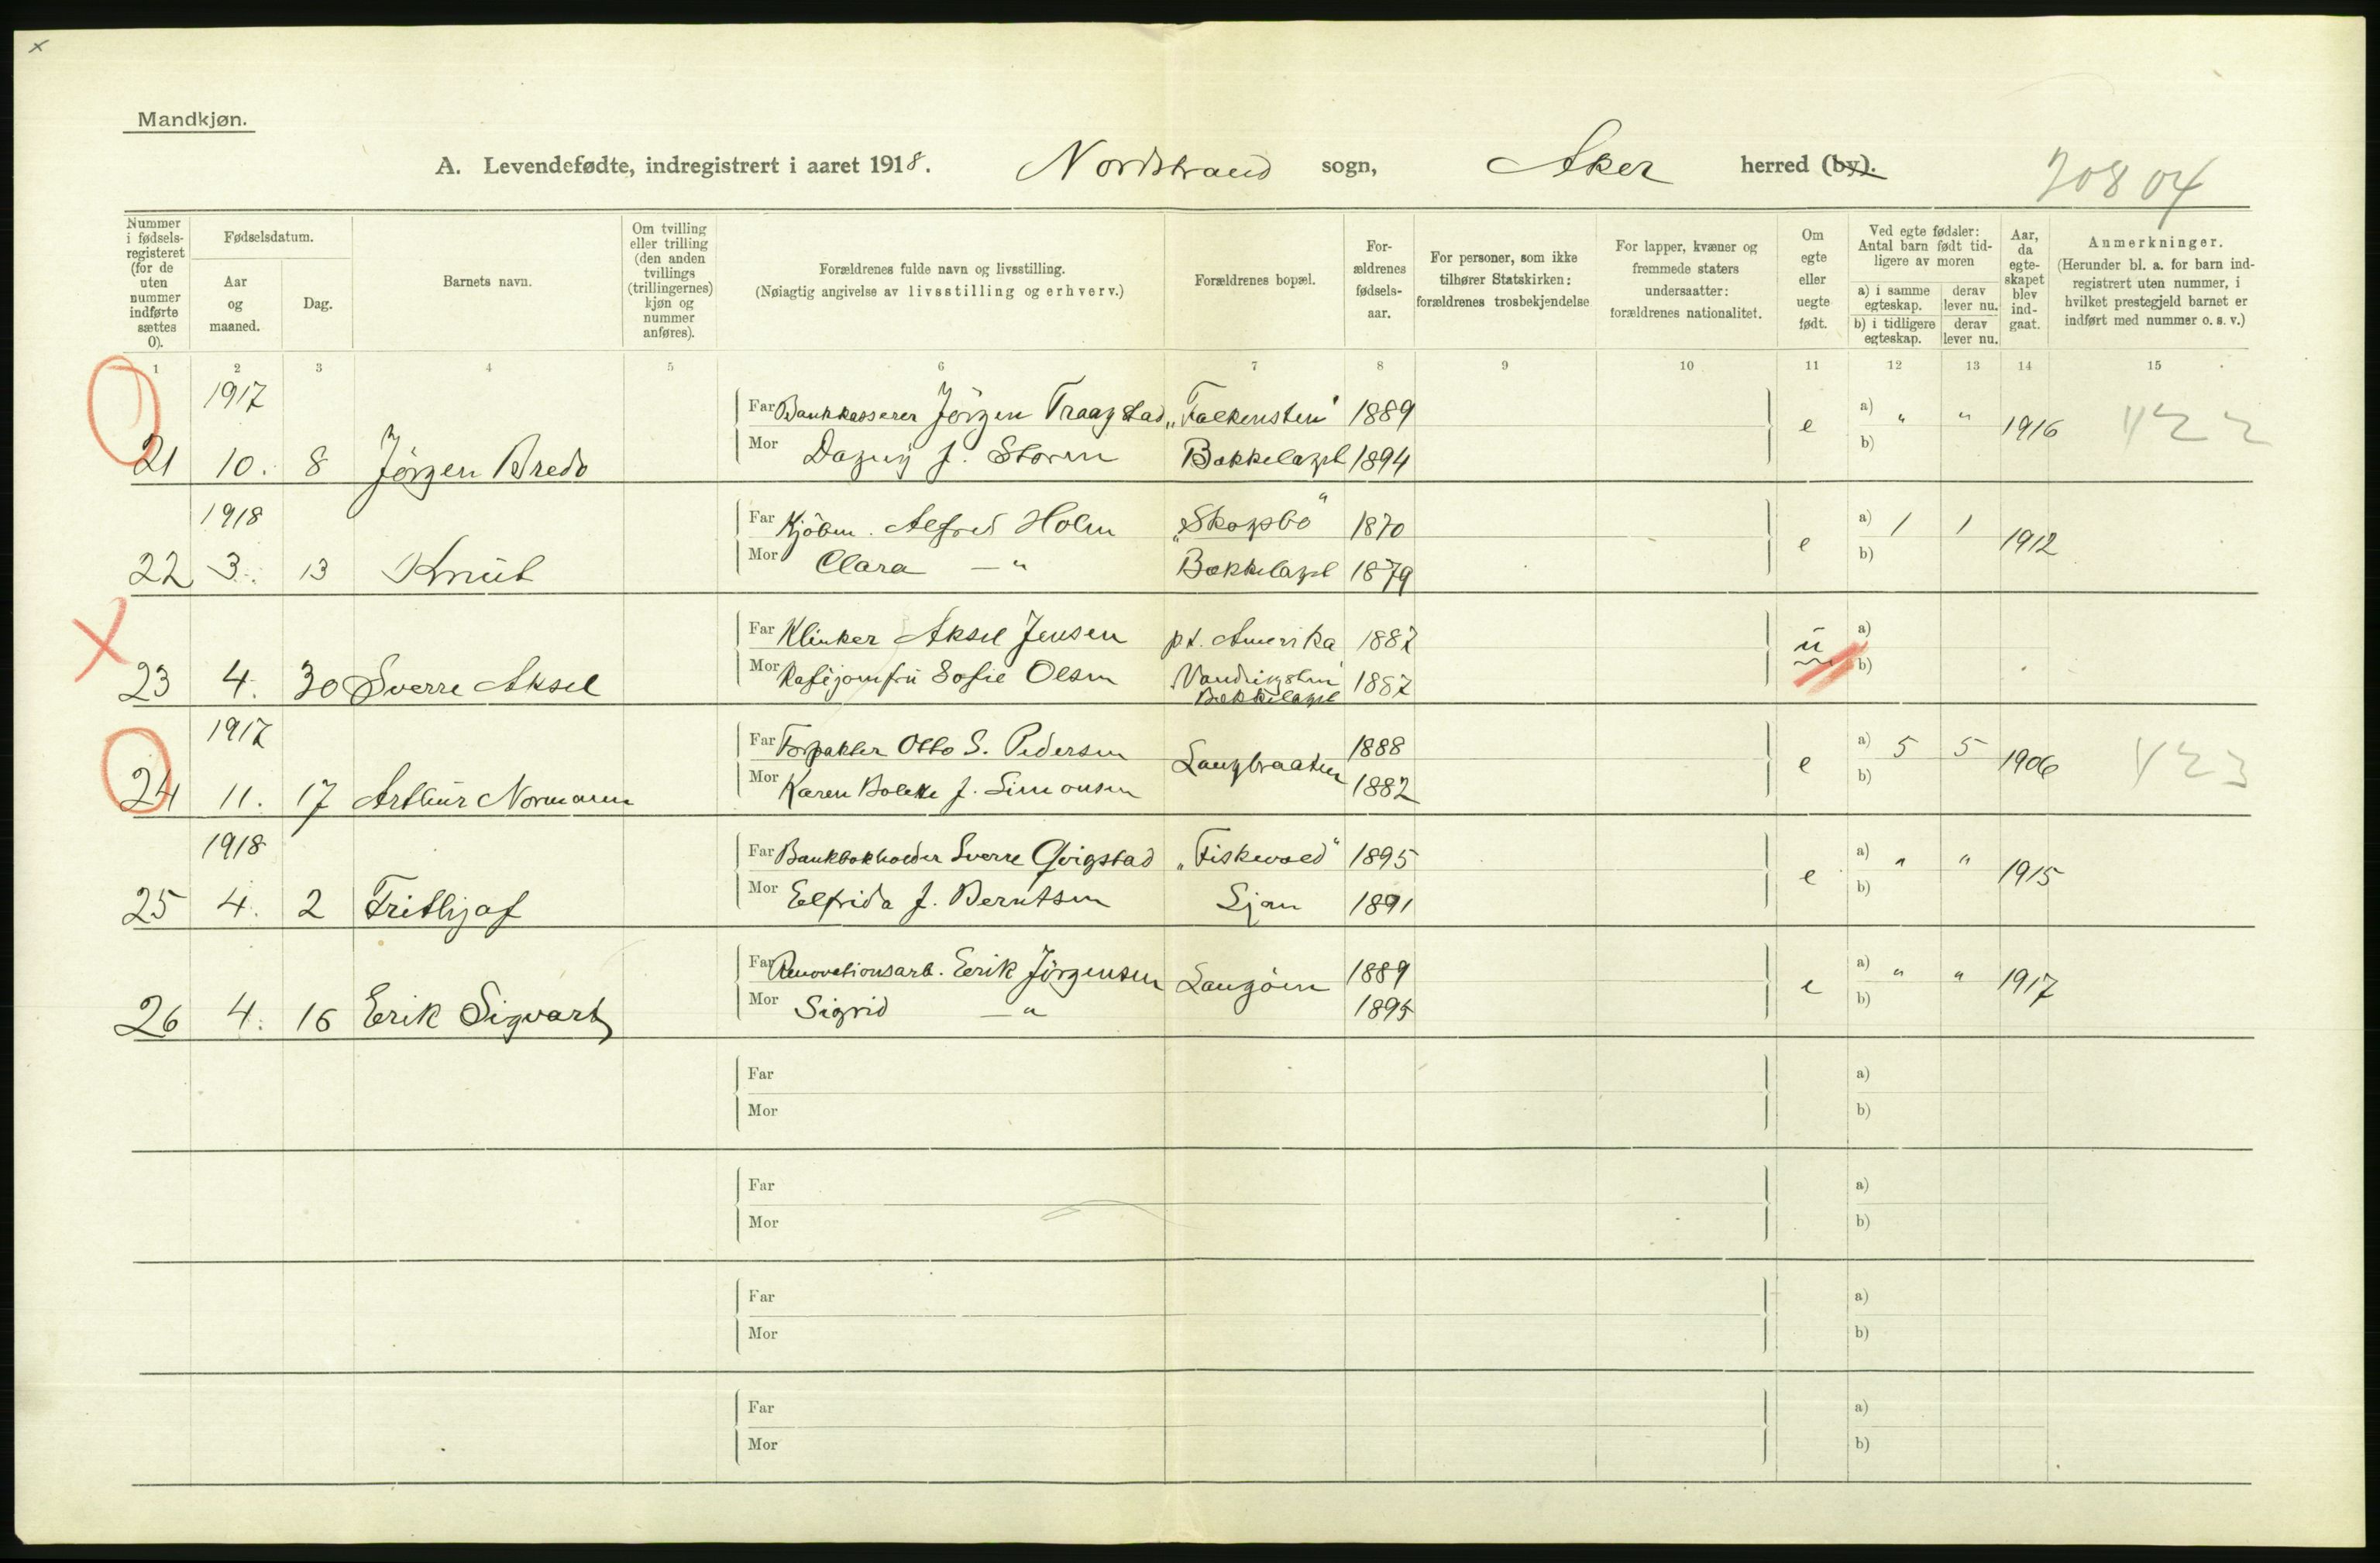 Mandkjøn.
A. Levendefødte, indregistrert i aaret 1918. Nordstrand sogn, Aker herred (by).
20804
Nummer i fødselsregisteret (for de uten nummer indførte sættes 0).
Fødselsdatum.
Aar og maaned.
Dag.
Barnets navn.
Om tvilling eller trilling (den anden tvillings (trillingernes) kjøn og nummer anføres).
Forældrenes fulde navn og livsstilling.
(Nøiagtig angivelse av livsstilling og erhverv.)
Forældrenes bopæl.
Forældrenes fødselsaar.
For personer, som ikke tilhører Statskirken: forældrenes trosbekjendelse
For lapper, kvæner og fremmede staters undersaatter: forældrenes nationalitet.
Om egte eller uegte født.
Ved egte fødsler: Antal barn født tidligere av moren
a) i samme egteskap. derav lever nu.
b) i tidligere egteskap. derav lever nu.
Aar, da egteskapet blev indgaat.
Anmerkninger.
(Herunder bl. a. for barn indregistrert uten nummer, i hvilket prestegjeld barnet er indført med nummer o. s. v.)
1 2 3 4 5 6 7 8 9 10 11 12 13 14 15
1917
Far Bankkasserer Jörgen Traagstad „Falkensten“ 1889 a) " "
21 10. 8 Jörgen Bredo e 1916 422
Mor Dagny f. Storm Bækkelaget 1894 b)
1918
Far Kjöbm. Alfred Holm „Skogbo“ 1870 a) 1 1
22 3. 13 Knut e 1912
Mor Clara — " Bækkelaget 1879 b)
Far Klinker Aksel Jensen pt. Amerika 1882 a)
23 4. 30 Sverre Aksel u
Mor Kaféjomfru Sofie Olsen Bækkelaget 1887 b)
1917
Far Forpakter Otto S. Pedersen 1888 a) 5 5
24 11. 17 Arthur Normann Langbraaten e 1906 423
Mor Karen Bolette f. Simonsen 1882 b)
1918
Far Bankbokholder Sverre Qvigstad „Fiskevold“ 1895 a) " "
25 4. 2 Frithjof e 1915
Mor Elfrida f. Berntsen Ljan 1891 b)
Far Renovationsarb. Erik Jörgensen 1889 a) " "
26 4. 16 Erik Sigvart Langöen e 1917
Mor Sigrid — " 1895 b)
Far a)
Mor b)
Far a)
Mor b)
Far a)
Mor b)
Far a)
Mor b)